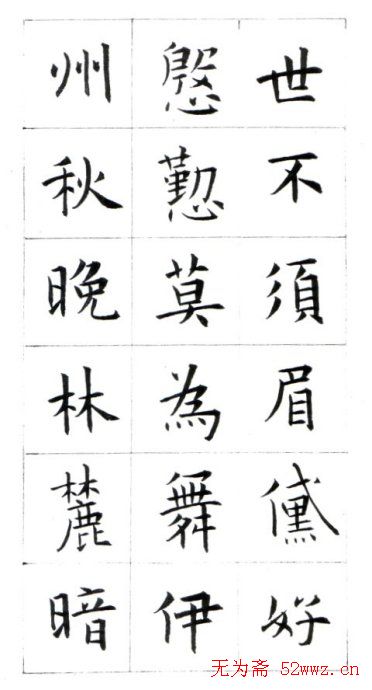 世不須眉黛好
慇懃莫為舞伊
州秋晚林麓暗
无为斋 52wwz.cn